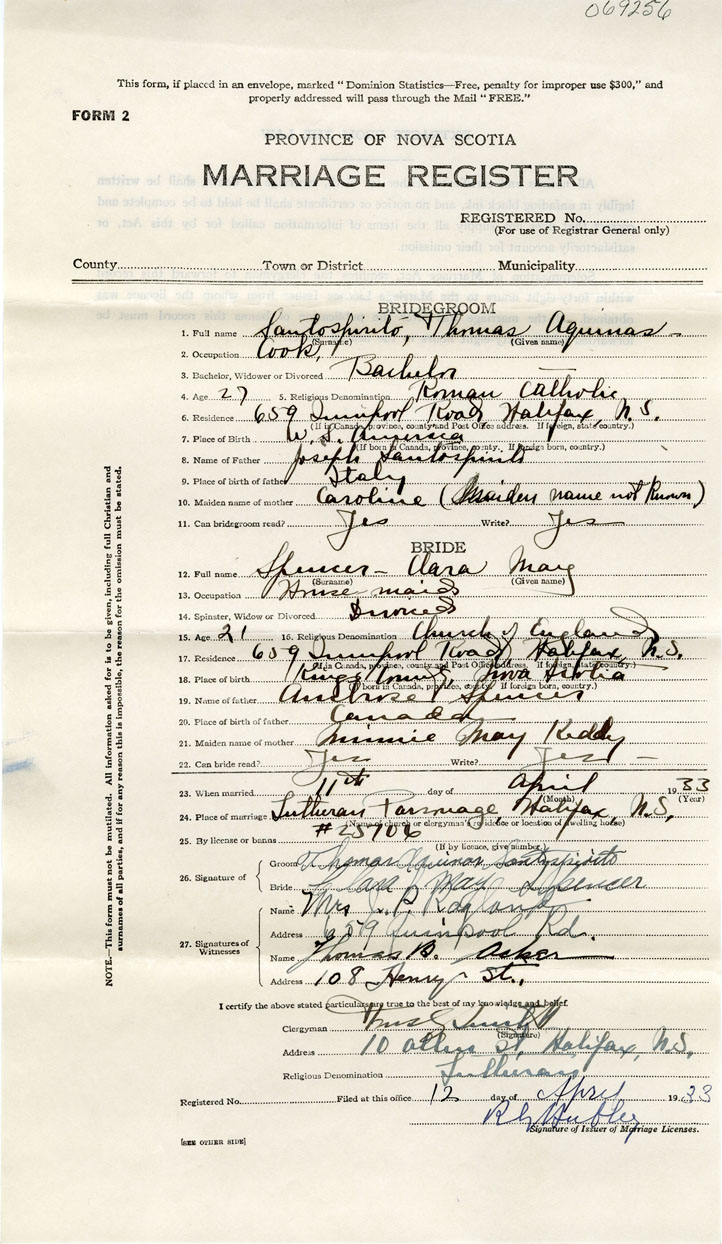 069256
This form, if placed in an envelope, marked "Dominion Statistics—Free, penalty for improper use $300," and
properly addressed will pass through the Mail "FREE."
FORM 2
PROVINCE OF NOVA SCOTIA
MARRIAGE REGISTER
REGISTERED No.
(For use of Registrar General only)
County Town or District Municipality
BRIDEGROOM
1. Full name Santospirito, Thomas Aquinas
(Surname) (Given name)
2. Occupation Cook,
3. Bachelor, Widower or Divorced Bachelor
4. Age 27 5. Religious Denomination Roman Catholic
6. Residence 659 Quinpool Road Halifax, N.S.
(If in Canada, province, county and Post Office address. If foreign, state country.)
7. Place of Birth U.S. America
(If born in Canada, province, county. If foreign born, country.)
8. Name of Father Joseph Santospirito
9. Place of birth of father Italy
10. Maiden name of mother Caroline (Maiden name not known)
11. Can bridegroom read? Yes Write? Yes
BRIDE
12. Full name Spencer – Clara May
(Surname) (Given name)
13. Occupation House maid
14. Spinster, Widow or Divorced Divorced
15. Age 21 16. Religious Denomination Church of England
17. Residence 659 Quinpool Road, Halifax, N.S.
(If in Canada, province, county and Post Office address. If foreign, state country.)
18. Place of birth Kings County, Nova Scotia
(If born in Canada, province, county. If foreign born, country.)
19. Name of father Ambrose Spencer
20. Place of birth of father Canada
21. Maiden name of mother Minnie May Keddy
22. Can bride read? Yes Write? Yes
23. When married 11th day of April 1933
(Month) (Year)
24. Place of marriage Lutheran Parsonage, Halifax, N.S.
(Name of church or clergyman's residence or location of dwelling house)
25. By license or banns #25906
(If by licence, give number)
26. Signature of
Groom Thomas Aquinas Santospirito
Bride Clara May Spencer
27. Signatures of Witnesses
Name Mrs. P.
Address 659 Quinpool Rd.
Name Thomas B. Asker
Address 108 Henry St.,
I certify the above stated particulars are true to the best of my knowledge and belief.
Clergyman
(Signature)
Address 10 Allen St, Halifax, N.S,
Religious Denomination Lutheran
Registered No. Filed at this office 12 day of April 1933
Signature of Issuer of Marriage Licenses.
[SEE OTHER SIDE]
NOTE.—This form must not be mutilated. All information asked for is to be given, including full Christian and
surnames of all parties, and if for any reason this is impossible, the reason for the omission must be stated.